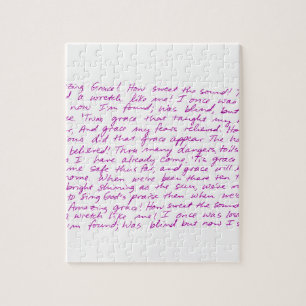 zing Grace! How sweet the sound!
d a wretch like me! I once was
now I'm found, Was blind, but
'Twas grace that taught my
r, And grace my fears relieved.
ous did that grace appear The
believed! Thru many dangers, toils
I have already come. 'Tis grace
me safe thus far, and grace will
ome. When we've been there ten
bright shining as the sun, we've
to sing God's praise then when we
Amazing grace! How sweet the sound
wretch like me! I once was los
m found, Was blind but now I s